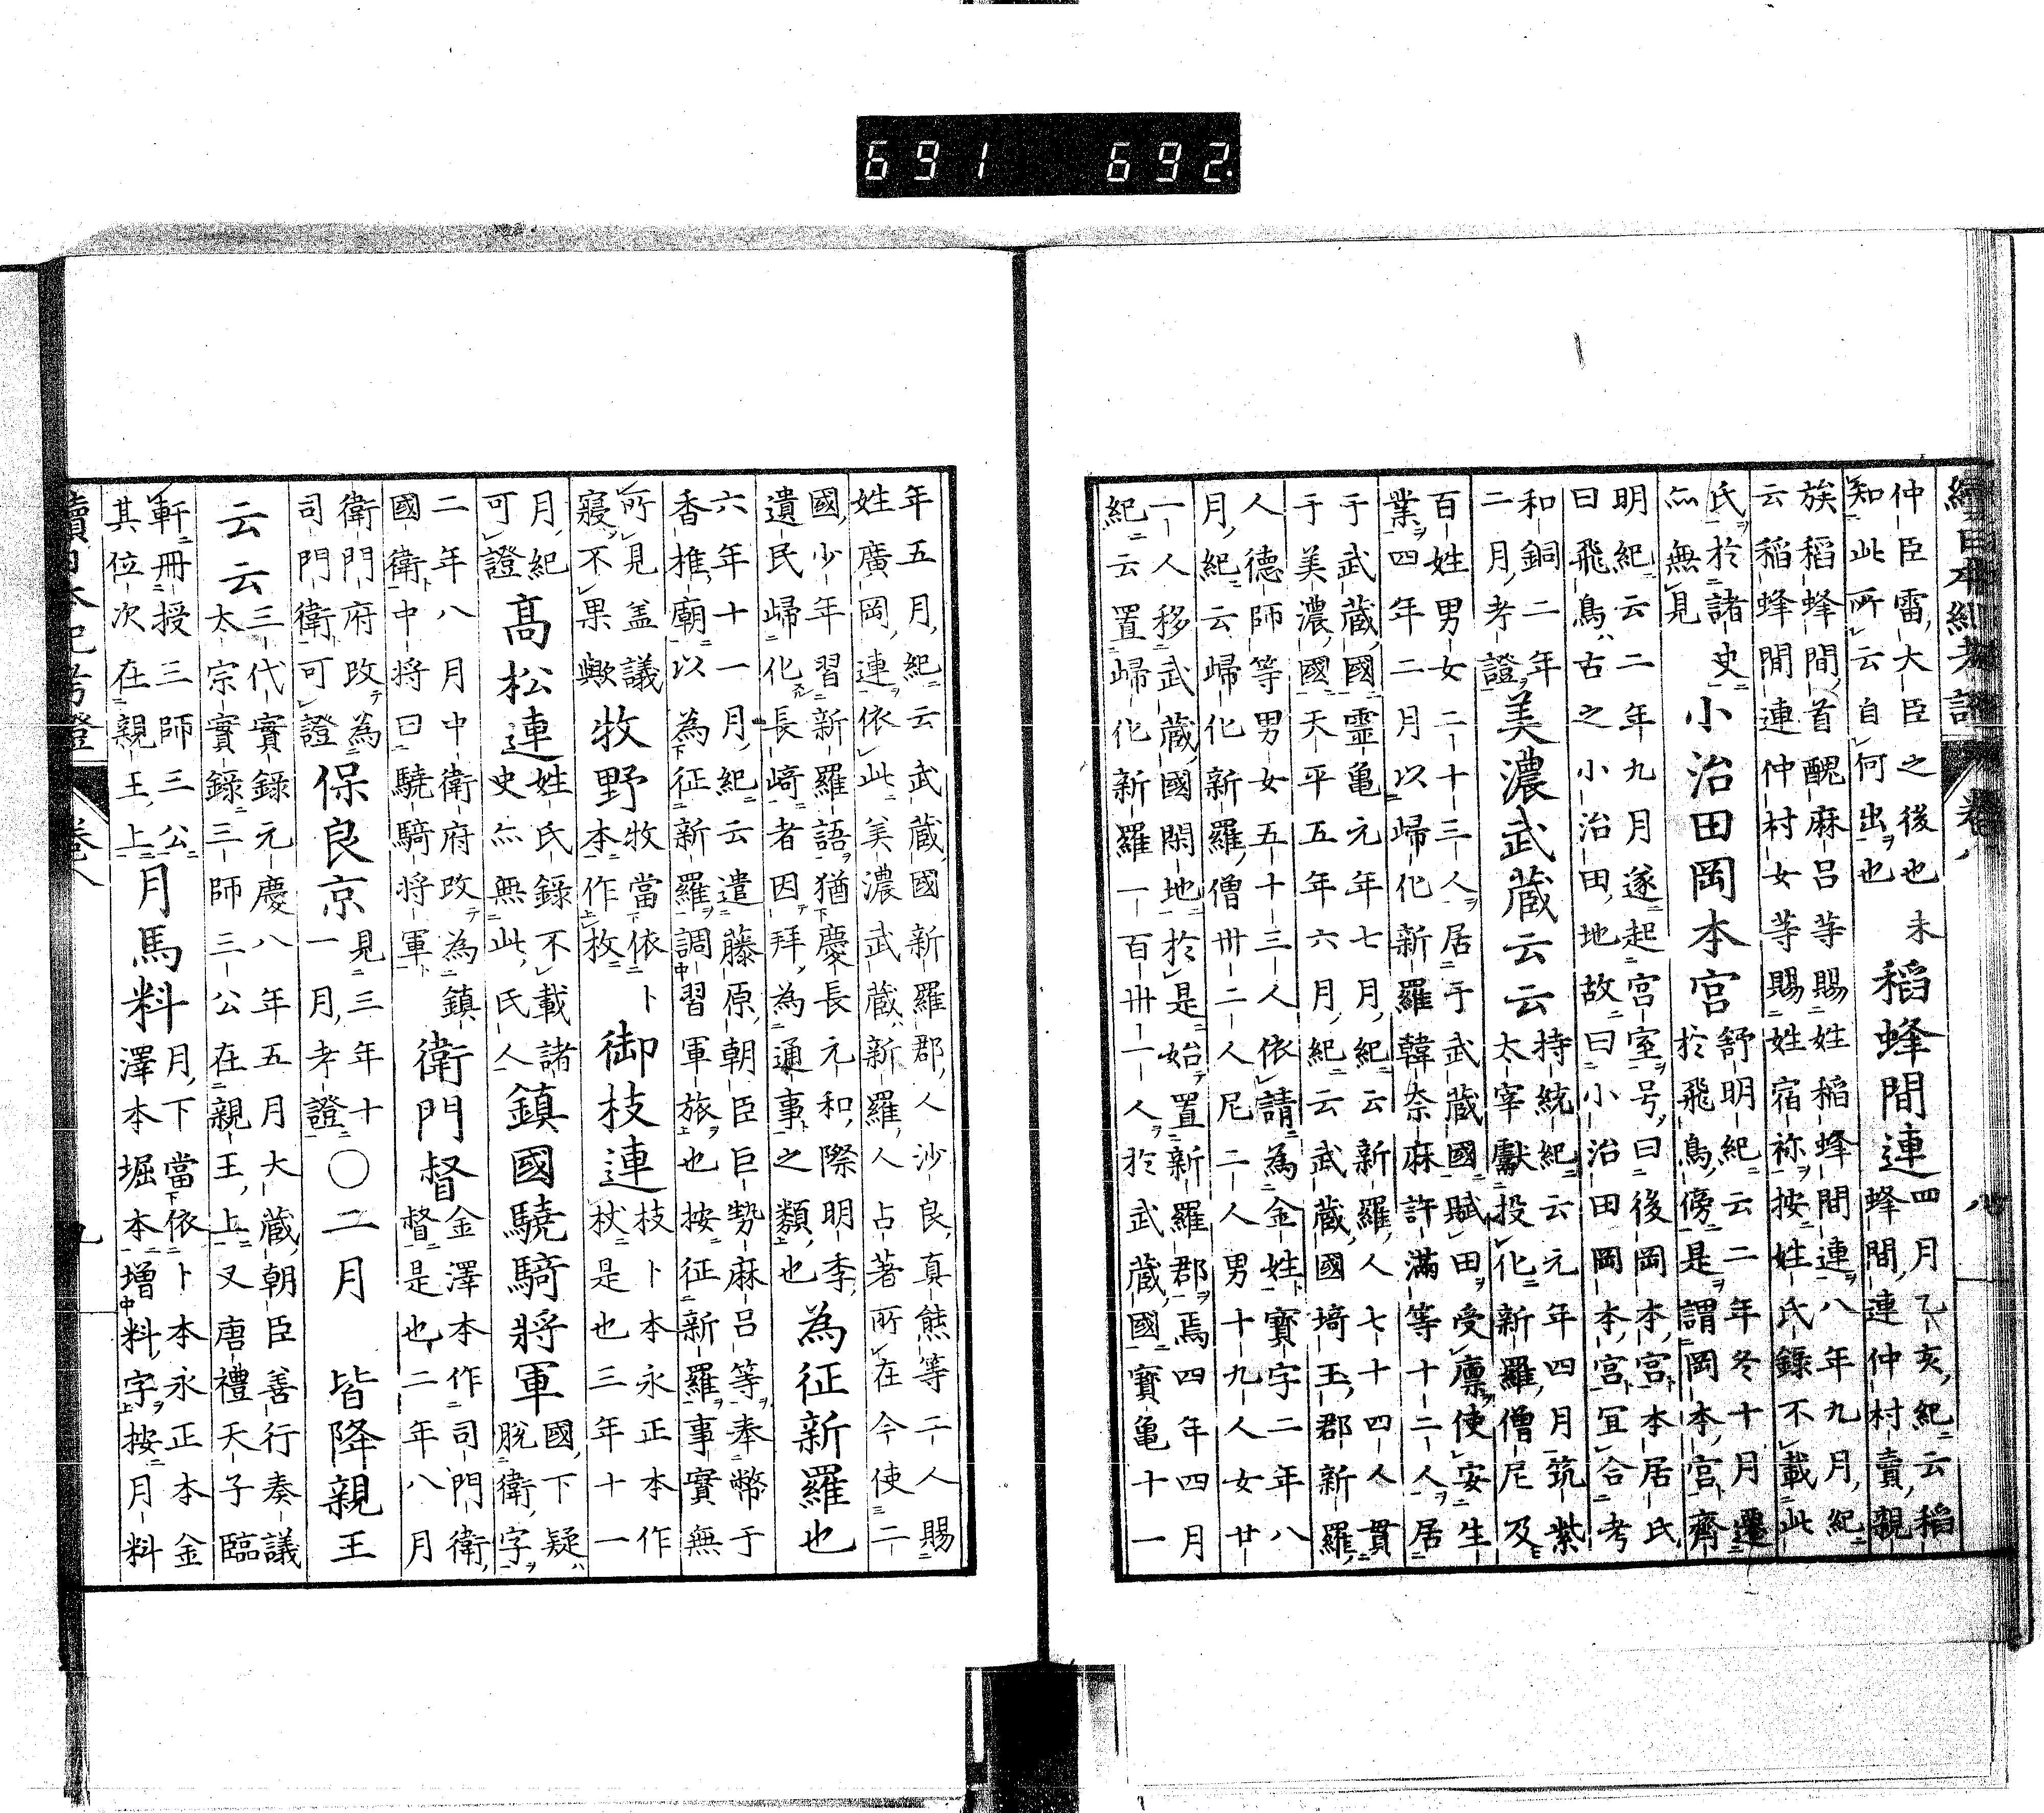 691 692
續日本紀考證 卷八 八
仲臣雷大臣之後也未
知此所云自何出也
稻蜂間連
四月乙亥紀云稻
蜂間連仲村賣親
族稻蜂間首醜麻呂等賜姓稻蜂間連八年九月紀
云稻蜂間連仲村女等賜姓宿祢按姓氏錄不載此
氏於諸史
亦無見
小治田岡本宮
舒明紀云二年冬十月遷
於飛鳥傍是謂岡本宮齊
明紀云二年九月遂起宮室号曰後岡本宮本居氏
曰飛鳥古之小治田地故曰小治田岡本宮宜合考
和銅二年
二月考證
美濃武蔵云云
持統紀云元年四月筑紫
太宰獻投化新羅僧尼及
百姓男女二十三人居于武蔵國賦田受廩使安生
業四年二月以歸化新羅韓奈麻許滿等十二人居
于武蔵國靈亀元年七月紀云新羅人七十四人貫
于美濃國天平五年六月紀云武蔵國埼玉郡新羅
人德師等男女五十三人依請為金姓寶字二年八
月紀云歸化新羅僧卅二人尼二人男十九人女廿
一人移武蔵國閑地於是始置新羅郡焉四年四月
紀云置歸化新羅一百卅一人於武蔵國寶亀十一
年五月紀云武蔵國新羅郡人沙良真熊等二人賜
姓廣岡連依此美濃武蔵新羅人占著所在今使二
國少年習新羅語猶慶長元和際明季
遺民歸化長﨑者因拜為通事之類也
為征新羅也
六年十一月紀云遣藤原朝臣巨勢麻呂等奉幣于
香椎廟以為征新羅調習軍旅也按征新羅事實無
所見盖議
寢不果歟
牧野
牧當依卜
本作枚
御枝連
枝卜本永正本作
杖是也三年十一
月紀
可證
髙松連
姓氏錄不載諸
史亦無此氏人
鎮國驍騎將軍
國下疑
脫衛字
二年八月中衛府改為鎮
國衛中将曰驍騎将軍
衛門督
金澤本作司門衛
督是也二年八月
衛門府改為
司門衛可證
保良京
見三年十
一月考證
〇二月 皆降親王
云云
三代實錄元慶八年五月大蔵朝臣善行奏議
太宗實錄三師三公在親王上又唐禮天子臨
軒冊授三師三公
其位次在親王上
月馬料
月下當依卜本永正本金
澤本堀本增料字按月料
續日本紀考證 卷八 九